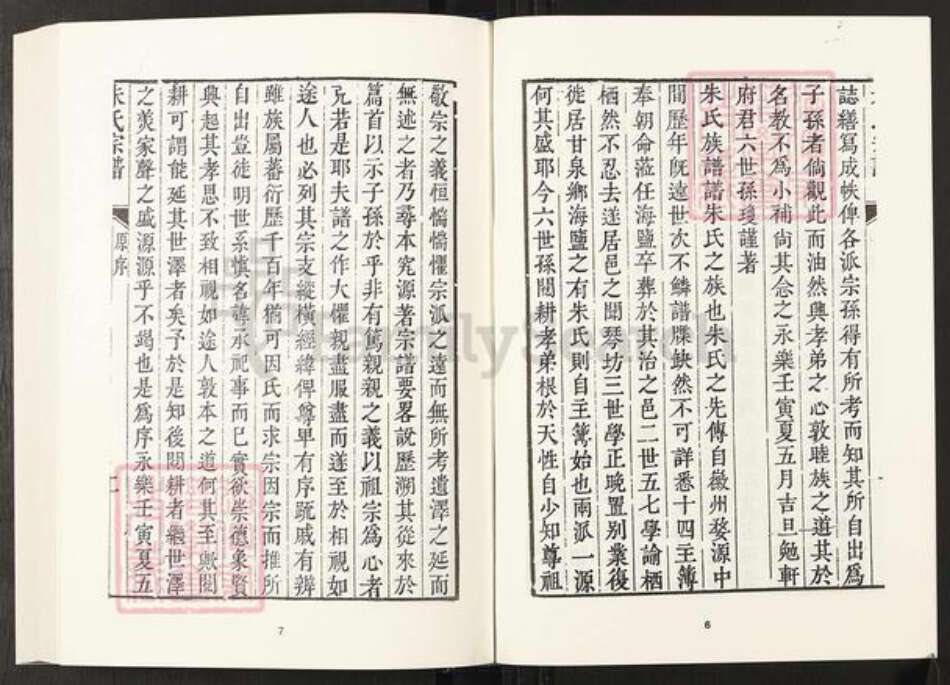 誌繕寫成帙俾各派宗孫得有所考而知其所自出為
子孫者倘觀此而油然興孝弟之心敦睦族之道其於
名教不為小補尚其念之永樂壬寅夏五月吉旦勉軒
府君六世孫瓊謹著
朱氏族譜譜朱氏之族也朱氏之先傳自徽州婺源中
間歷年旣遠世次不鱗譜牒缺然不可詳悉十四主簿
奉朝命蒞任海鹽卒葬於其治之邑二世五七學諭栖
栖然不忍去遂居邑之聞琴坊三世學正晚置别業復
徙居甘泉鄉海鹽之有朱氏則自主簿始也兩派一源
何其盛耶今六世孫閱耕孝弟根於天性自少知尊祖
6
敬宗之義恒惴惴懼宗派之遠而無所考遺澤之延而
無述之者乃尋本究源著宗譜要畧說歷溯其從來於
篇首以示子孫於乎非有篤親親之義以祖宗為心者
兄若是耶夫譜之作大懼親盡服盡而遂至於相視如
途人也必列其宗支縱橫經緯俾尊卑有序踈戚有辨
雖族屬蕃衍歷千百年猶可因氏而求宗因宗而推所
自出豈徒明世系慎名諱承祀事而已實欲崇德象賢
典起其孝思不致相視如途人敦本之道何其至歟閱
耕可謂能延其世澤者矣予於是知後閱耕者綿世澤
之美家聲之盛源源乎不竭也是為序永樂壬寅夏五
朱氏宗譜
原序
7